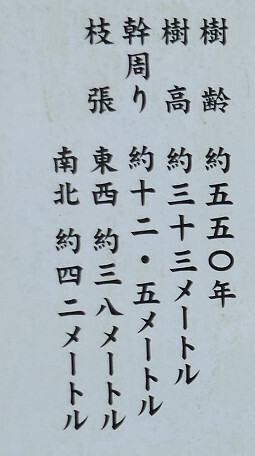 樹齢 約五五〇年
樹高 約三十三メートル
幹周り 約十二・五メートル
枝張 東西 約三八メートル
南北 約四二メートル